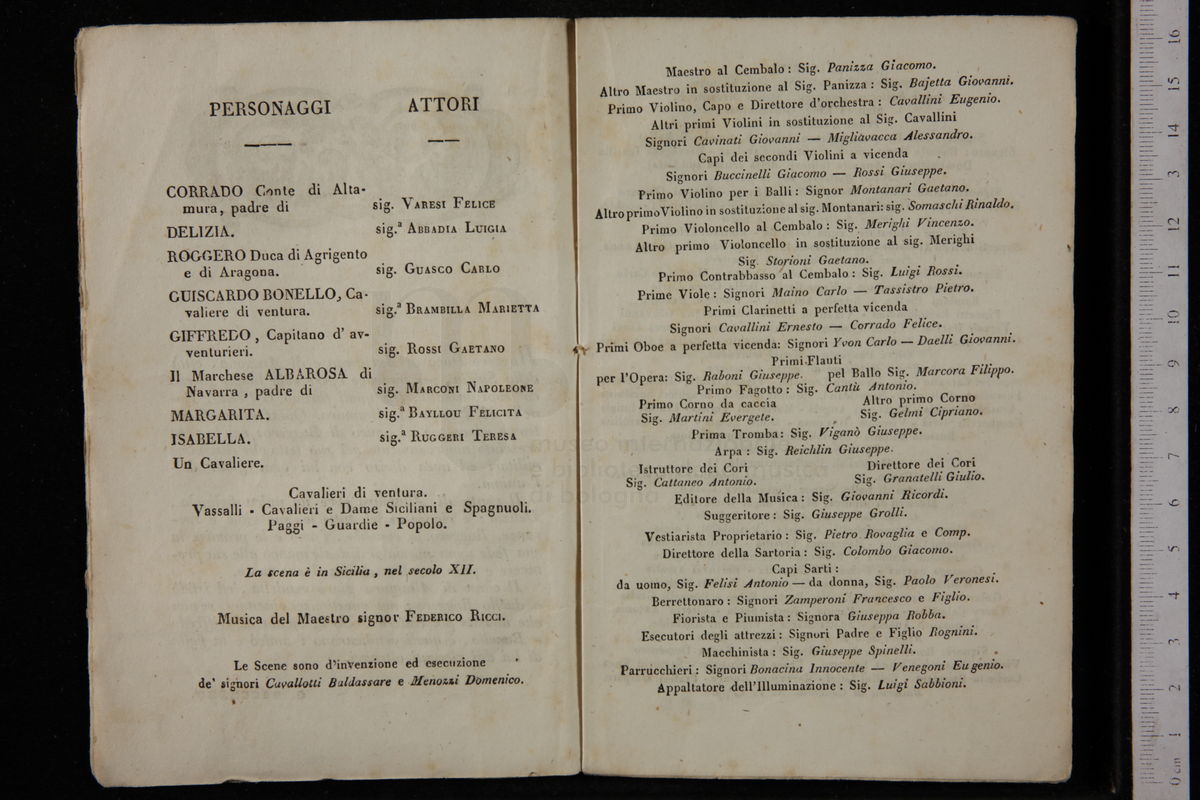 PERSONAGGI ATTORI
CORRADO Conte di Alta-
mura, padre di sig. VARESI FELICE
DELIZIA. sig.ª ABBADIA LUIGIA
ROGGERO Duca di Agrigento
e di Aragona. sig. GUASCO CARLO
GUISCARDO BONELLO, Ca-
valiere di ventura. sig.ª BRAMBILLA MARIETTA
GIFFREDO, Capitano d' av-
venturieri. sig. ROSSI GAETANO
Il Marchese ALBAROSA di
Navarra, padre di sig. MARCONI NAPOLEONE
MARGARITA. sig.ª BAYLLOU FELICITA
ISABELLA. sig.ª RUGGERI TERESA
Un Cavaliere.
Cavalieri di ventura.
Vassalli - Cavalieri e Dame Siciliani e Spagnuoli.
Paggi - Guardie - Popolo.
La scena è in Sicilia, nel secolo XII.
Musica del Maestro signor FEDERICO RICCI.
Le Scene sono d'invenzione ed esecuzione
de' signori Cavallotti Baldassare e Menozzi Domenico.
Maestro al Cembalo: Sig. Panizza Giacomo.
Altro Maestro in sostituzione al Sig. Panizza: Sig. Bajetta Giovanni.
Primo Violino, Capo e Direttore d'orchestra: Cavallini Eugenio.
Altri primi Violini in sostituzione al Sig. Cavallini
Signori Cavinati Giovanni — Migliavacca Alessandro.
Capi dei secondi Violini a vicenda
Signori Buccinelli Giacomo — Rossi Giuseppe.
Primo Violino per i Balli: Signor Montanari Gaetano.
Altro primo Violino in sostituzione al sig. Montanari: sig. Somaschi Rinaldo.
Primo Violoncello al Cembalo: Sig. Merighi Vincenzo.
Altro primo Violoncello in sostituzione al sig. Merighi
Sig. Storioni Gaetano.
Primo Contrabbasso al Cembalo: Sig. Luigi Rossi.
Prime Viole: Signori Maino Carlo — Tassistro Pietro.
Primi Clarinetti a perfetta vicenda
Signori Cavallini Ernesto — Corrado Felice.
Primi Oboe a perfetta vicenda: Signori Yvon Carlo — Daelli Giovanni.
Primi Flauti
per l'Opera: Sig. Raboni Giuseppe. pel Ballo Sig. Marcora Filippo.
Primo Fagotto: Sig. Cantù Antonio.
Primo Corno da caccia Altro primo Corno
Sig. Martini Evergete. Sig. Gelmi Cipriano.
Prima Tromba: Sig. Viganò Giuseppe.
Arpa: Sig. Reichlin Giuseppe.
Istruttore dei Cori Direttore dei Cori
Sig. Cattaneo Antonio. Sig. Granatelli Giulio.
Editore della Musica: Sig. Giovanni Ricordi.
Suggeritore: Sig. Giuseppe Grolli.
Vestiarista Proprietario: Sig. Pietro Rovaglia e Comp.
Direttore della Sartoria: Sig. Colombo Giacomo.
Capi Sarti:
da uomo, Sig. Felisi Antonio — da donna, Sig. Paolo Veronesi.
Berrettonaro: Signori Zamperoni Francesco e Figlio.
Fiorista e Piumista: Signora Giuseppa Robba.
Esecutori degli attrezzi: Signori Padre e Figlio Rognini.
Macchinista: Sig. Giuseppe Spinelli.
Parrucchieri: Signori Bonacina Innocente — Venegoni Eugenio.
Appaltatore dell'Illuminazione: Sig. Luigi Sabbioni.